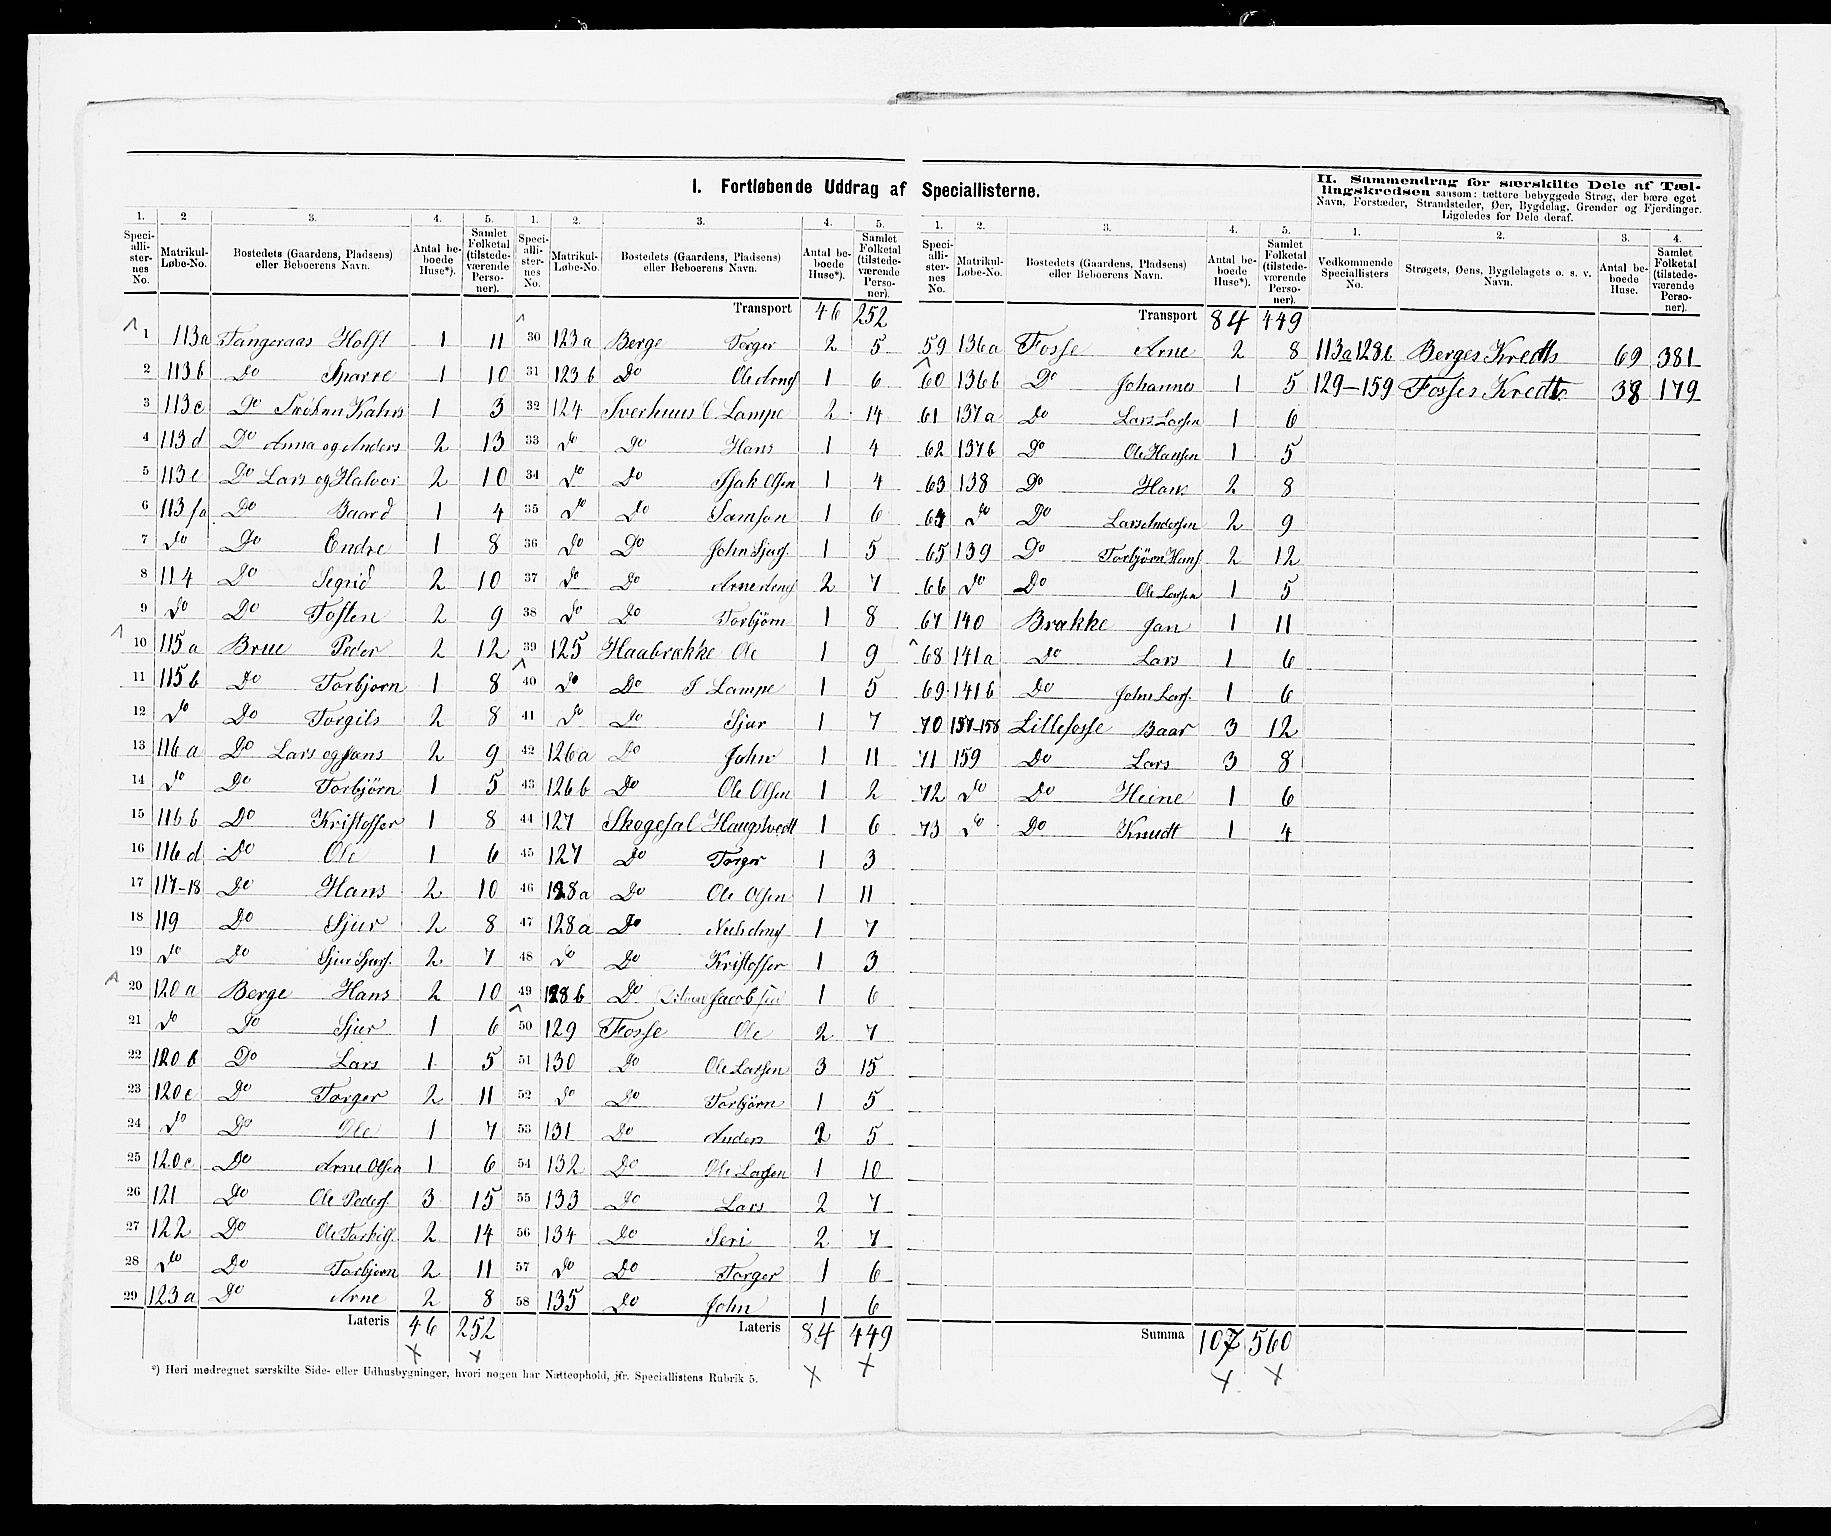 I. Fortløbende Uddrag af Speciallisterne.
1. 2 3. 4. 5.
Speciallisternes No. Matrikul-Løbe-No. Bostedets (Gaardens, Pladsens) eller Beboerens Navn. Antal beboede Huse*). Samlet Folketal (tilstedeværende Personer).
1 113a Tangeraas Holst 1 11
2 113b Do Sparre 1 10
3 113c Do Frøken Kahrs 1 3
4 113d Do Anna og Anders 2 13
5 113e Do Lars og Halvor 2 10
6 113fa Do Baard 1 4
7 Do Do Endre 1 8
8 114 Do Segrid 2 10
9 Do Do Tosten 2 9
10 115a Brue Peder 2 12
11 115b Do Torbjørn 1 8
12 Do Do Torgils 2 8
13 116a Do Lars og Jans 2 9
14 Do Do Torbjörn 1 5
15 116b Do Kristoffer 1 8
16 116d Do Ole 1 6
17 117-18 Do Hans 2 10
18 119 Do Sjur 2 8
19 Do Do Sjur Sjurs. 2 7
20 120a Berge Hans 2 10
21 Do Do Sjur 1 6
22 120b Do Lars 1 5
23 120c Do Torger 2 11
24 Do Do Ole 1 7
25 120c Do Arne Olsen 1 6
26 121 Do Ole Peders 3 15
27 122 Do Ole 2 14
28 Do Do Torbjørn 2 11
29 123a Do Arne 2 8
Lateris 46 252
*) Heri medregnet særskilte Side- eller Udhusbygninger, hvori nogen har Natteophold, jfr. Speciallistens Rubrik 5.
1. 2. 3. 4. 5.
Speciallisternes No. Matrikul-Løbe-No. Bostedets (Gaardens, Pladsens) eller Beboerens Navn. Antal beboede Huse*). Samlet Folketal (tilstedeværende Personer).
Transport 46 252
30 123a Berge Torger 2 5
31 123b Do Ole Arns 1 6
32 124 Sverhuus C. Lampe 2 14
33 Do Do Hans 1 4
34 Do Do Isak Olsen 1 4
35 Do Do Samson 1 6
36 Do Do John Sjurs. 1 5
37 Do Do Arne Arns 2 7
38 Do Do Torbjørn 1 8
39 125 Haabrække Ole 1 9
40 Do Do J Lampe 1 5
41 Do Do Sjur 1 7
42 126a Do John 1 11
43 126b Do Ole Olsen 1 2
44 127 Skogesal Haugstvedt 1 6
45 127 Do Torger 1 3
46 128a Do Ole Olsen 1 11
47 128a Do 1 7
48 Do Do Kristoffer 1 3
49 128b Do Jacobsen 1 6
50 129 Fosse Ole 2 7
51 130 Do Ole Larsen 3 15
52 Do Do Torbjörn 1 5
53 131 Do Anders 2 5
54 132 Do Ole Larsen 1 10
55 133 Do Lars 2 7
56 134 Do Seri 2 7
57 Do Do Torger 1 6
58 135 Do John 1 6
Lateris 84 449
1. 2. 3. 4. 5.
Speciallisternes No. Matrikul-Løbe-No. Bostedets (Gaardens, Pladsens) eller Beboerens Navn. Antal beboede Huse*). Samlet Folketal (tilstedeværende Personer).
Transport 84 449
59 136a Fosse Arne 2 8
60 136b Do Johannes 1 5
61 137a Do Lars Larsen 1 6
62 137b Do Ole Hansen 1 5
63 138 Do Hans 2 8
64 Do Do Lars Andersen 2 9
65 139 Do Torbjörn Hans 2 12
66 Do Do Ole Larsen 1 5
67 140 Brække Jan 1 11
68 141a Do Lars 1 6
69 141b Do John Lars. 1 6
70 157-158 Lillefosse Baar 3 12
71 159 Do Lars 3 8
72 Do Do Heine 1 6
73 Do Do Knudt 1 4
Summa 107 560
II. Sammendrag for særskilte Dele af Tællingskredsen saasom: tættere bebyggede Strøg, der bære eget Navn, Forstæder, Strandsteder, Øer, Bygdelag, Grender og Fjerdinger. Ligeledes for Dele deraf.
1. 2. 3. 4.
Vedkommende Speciallisters No. Strøgets, Øens, Bygdelagets o. s. v. Navn. Antal beboede Huse. Samlet Folketal (tilstedeværende Personer).
113a 128b Berges Kreds 69 381
129–159 Fosses Kreds 38 179